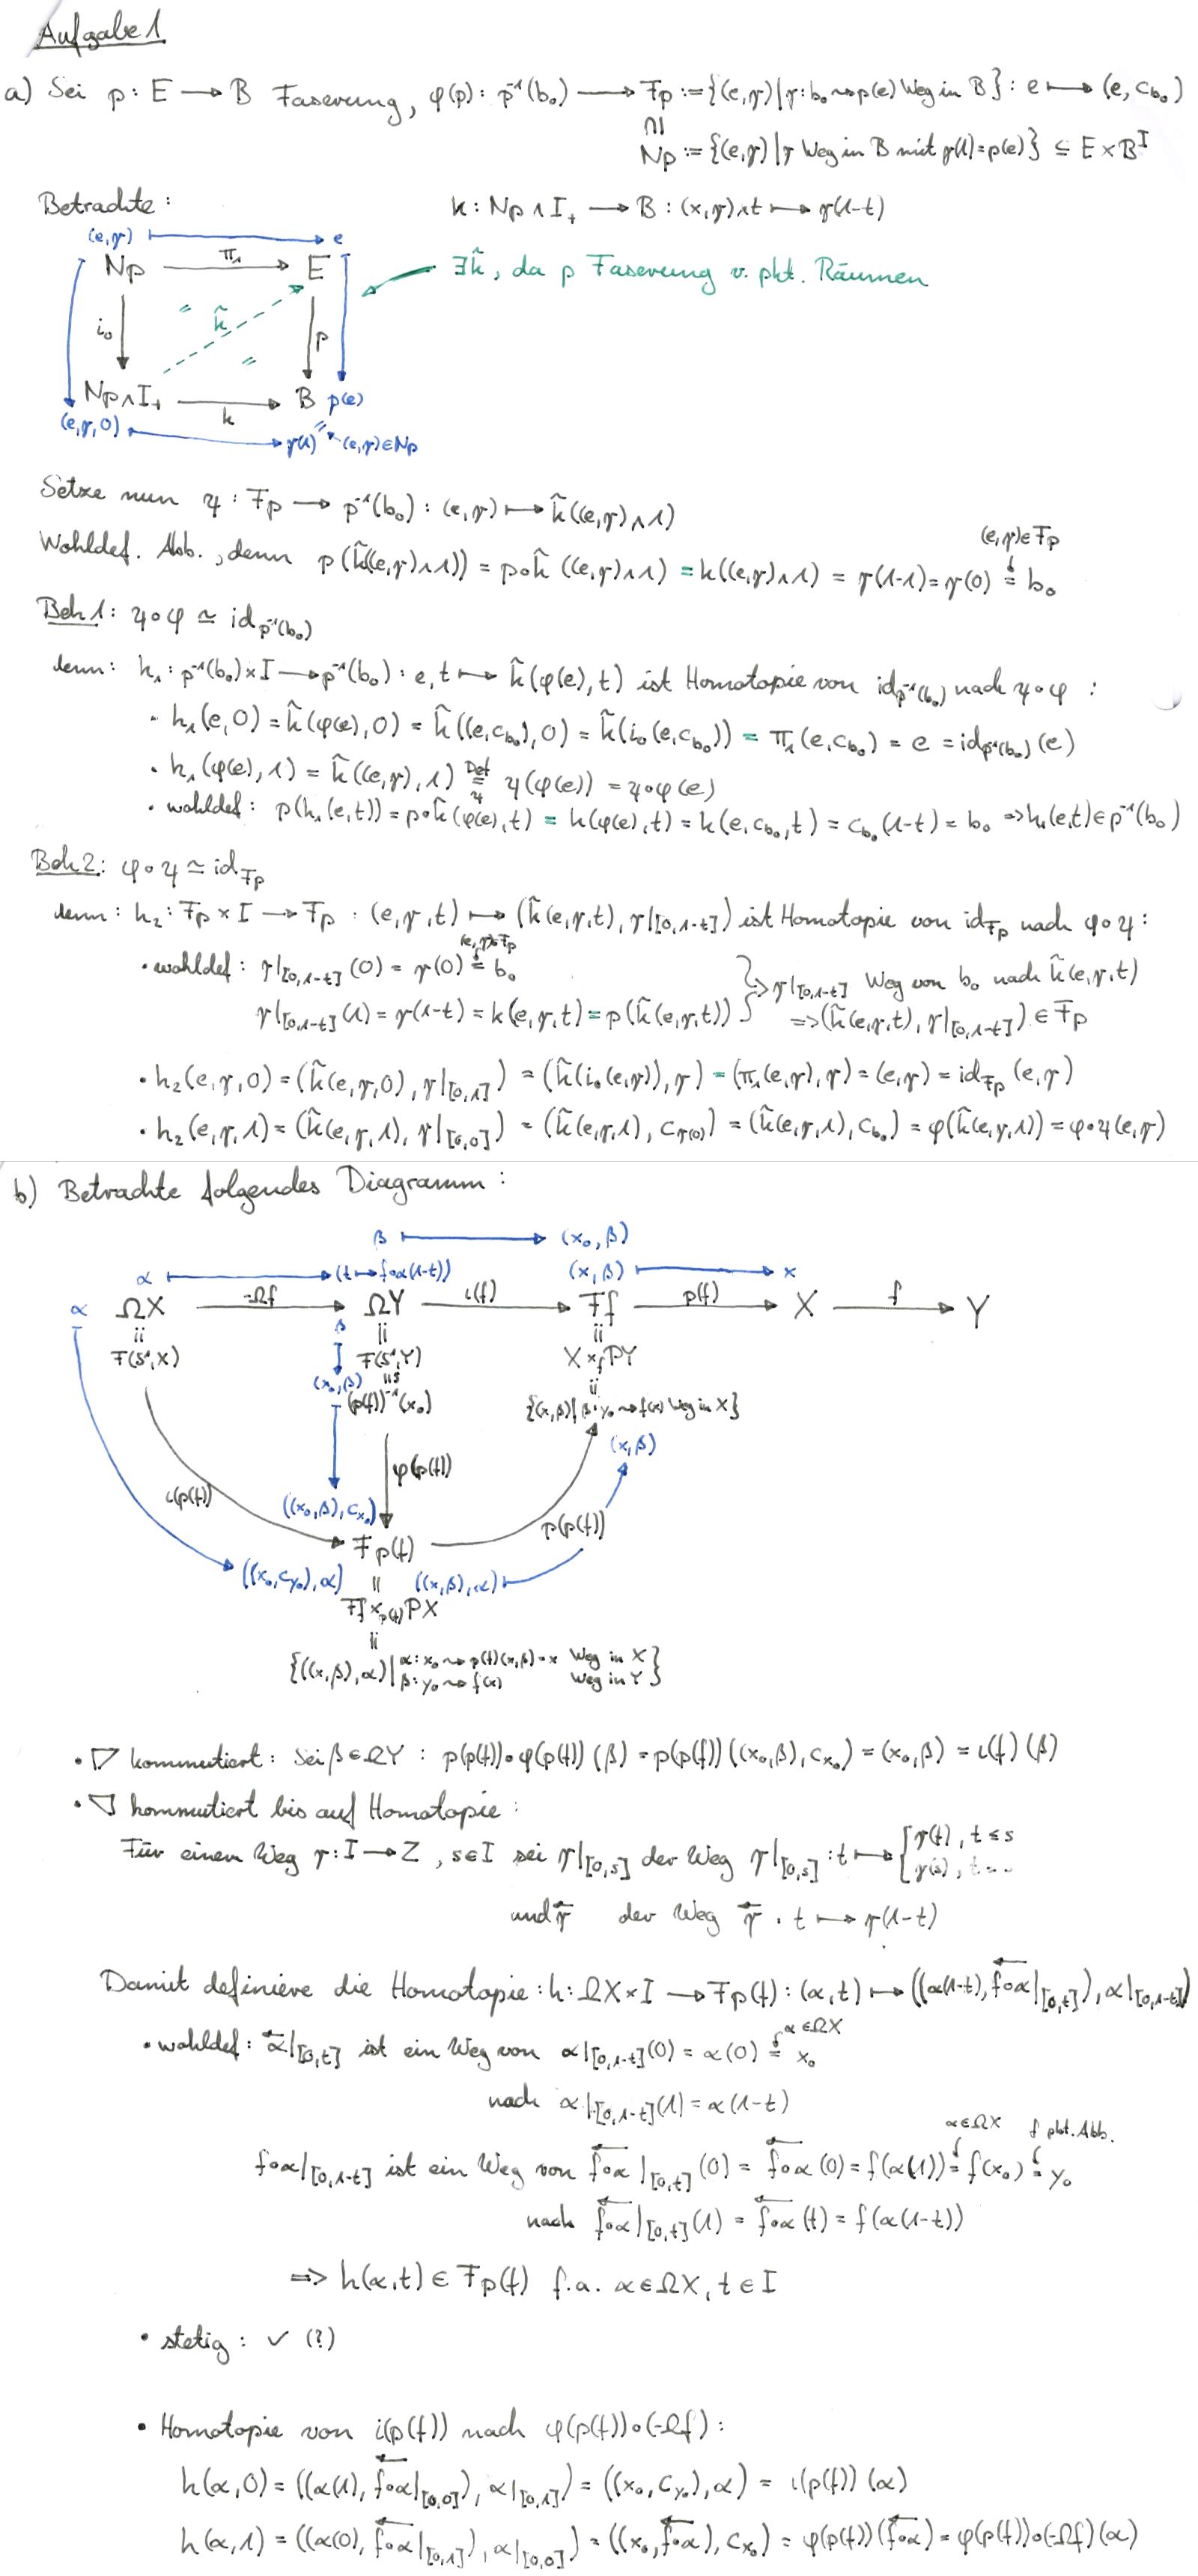 Aufgabe 1
a) Sei p: E → B Faserung, φ(p): p⁻¹(b₀) → Fp := {(e,γ) | γ: b₀ ⇝ p(e) Weg in B} : e ↦ (e, c_{b₀})
∩|
Np := {(e,γ) | γ Weg in B mit γ(1)=p(e)} ⊆ E × B^I
Betrachte:
k: Np ∧ I₊ → B : (x,γ)∧t ↦ γ(1-t)
(e,γ) ↦ e
Np → π₁ → E
∃k̃, da p Faserung v. pkt. Räumen
i₀ k̃ p
Np∧I₊ → k → B p(e)
(e,γ,0) ↦ γ(1) (e,γ)∈Np
Setze nun ψ: Fp → p⁻¹(b₀) : (e,γ) ↦ k̃((e,γ)∧1)
(e,γ)∈Fp
Wohldef. Abb., denn p(k̃((e,γ)∧1)) = p∘k̃((e,γ)∧1) = k((e,γ)∧1) = γ(1-1) = γ(0) = b₀
Beh 1: ψ∘φ ≃ id_{p⁻¹(b₀)}
denn: h₁: p⁻¹(b₀)×I → p⁻¹(b₀) : e,t ↦ k̃(φ(e),t) ist Homotopie von id_{p⁻¹(b₀)} nach ψ∘φ :
• h₁(e,0) = k̃(φ(e),0) = k̃((e,c_{b₀}),0) = k̃(i₀(e,c_{b₀})) = π₁(e,c_{b₀}) = e = id_{p⁻¹(b₀)}(e)
• h₁(φ(e),1) = k̃((e,γ),1) =^{Def}_ψ ψ(φ(e)) = ψ∘φ(e)
• wohldef: p(h₁(e,t)) = p∘k̃(φ(e),t) = k(φ(e),t) = k(e,c_{b₀},t) = c_{b₀}(1-t) = b₀ ⇒ h₁(e,t) ∈ p⁻¹(b₀)
Beh 2: φ∘ψ ≃ id_{Fp}
denn: h₂: Fp × I → Fp : (e,γ,t) ↦ (k̃(e,γ,t), γ|_{[0,1-t]}) ist Homotopie von id_{Fp} nach φ∘ψ :
(e,γ)∈Fp
• wohldef: γ|_{[0,1-t]}(0) = γ(0) = b₀
⇒ γ|_{[0,1-t]} Weg von b₀ nach k̃(e,γ,t)
γ|_{[0,1-t]}(1) = γ(1-t) = k(e,γ,t) = p(k̃(e,γ,t)) ⇒ (k̃(e,γ,t), γ|_{[0,1-t]}) ∈ Fp
• h₂(e,γ,0) = (k̃(e,γ,0), γ|_{[0,1]}) = (k̃(i₀(e,γ)), γ) = (π₁(e,γ), γ) = (e,γ) = id_{Fp}(e,γ)
• h₂(e,γ,1) = (k̃(e,γ,1), γ|_{[0,0]}) = (k̃(e,γ,1), c_{γ(0)}) = (k̃(e,γ,1), c_{b₀}) = φ(k̃(e,γ,1)) = φ∘ψ(e,γ)
b) Betrachte folgendes Diagramm:
β ↦ (x₀,β)
α ↦ (t ↦ f∘α(1-t)) (x,β) ↦ x
α ΩX → -Ωf → ΩY → ι(f) → Ff → p(f) → X → f → Y
F(S¹,X) β F(S¹,Y) X ×_f PY
(x₀,β) (p(f))⁻¹(x₀) {(x,β) | β: y₀ ⇝ f(x) Weg in X}
(x,β)
φ(p(f))
ι(p(f)) ((x₀,β),c_{x₀})
Fp(f) p(p(f))
((x₀,c_{y₀}),α) ((x,β),α)
Ff ×_{p(f)} PX
{((x,β),α) | α: x₀ ⇝ p(f)(x,β)=x Weg in X
β: y₀ ⇝ f(x) Weg in Y}
• ▽ kommutiert: Sei β∈ΩY : p(p(f))∘φ(p(f))(β) = p(p(f))((x₀,β),c_{x₀}) = (x₀,β) = ι(f)(β)
• ▽ kommutiert bis auf Homotopie:
Für einen Weg γ: I → Z, s∈I sei γ|_{[0,s]} der Weg γ|_{[0,s]} : t ↦ { γ(t), t ≤ s
γ(s), t
und γ⃖ der Weg γ⃖ : t ↦ γ(1-t)
Damit definiere die Homotopie: h: ΩX×I → Fp(f) : (α,t) ↦ ((α(1-t), f∘α⃖|_{[0,t]}), α|_{[0,1-t]})
α∈ΩX
• wohldef: α⃖|_{[0,t]} ist ein Weg von α|_{[0,1-t]}(0) = α(0) = x₀
nach α|_{[0,1-t]}(1) = α(1-t)
α∈ΩX f pkt. Abb.
f∘α|_{[0,1-t]} ist ein Weg von f∘α⃖|_{[0,t]}(0) = f∘α⃖(0) = f(α(1)) = f(x₀) = y₀
nach f∘α⃖|_{[0,t]}(1) = f∘α⃖(t) = f(α(1-t))
⇒ h(α,t) ∈ Fp(f) f.a. α∈ΩX, t∈I
• stetig: ✓ (?)
• Homotopie von i(p(f)) nach φ(p(f))∘(-Ωf):
h(α,0) = ((α(1), f∘α⃖|_{[0,0]}), α|_{[0,1]}) = ((x₀,c_{y₀}),α) = ι(p(f))(α)
h(α,1) = ((α(0), f∘α⃖|_{[0,1]}), α|_{[0,0]}) = ((x₀, f∘α⃖), c_{x₀}) = φ(p(f))(f∘α⃖) = φ(p(f))∘(-Ωf)(α)